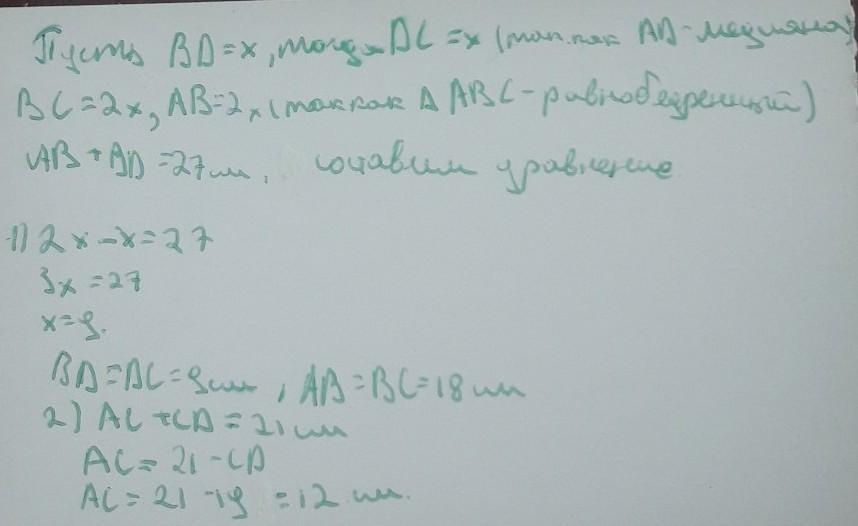 Пусть BD=x, тогда DC=x (так как AD-медиана)
BC=2x, AB=2x (так как Δ ABC-равнобедренный)
AB+BD=27см, составим уравнение
1) 2x-x=27
3x=27
x=9.
BD=DC=9см, AB=BC=18см
2) AC+CD=21см
AC=21-CD
AC=21-19=12 см.